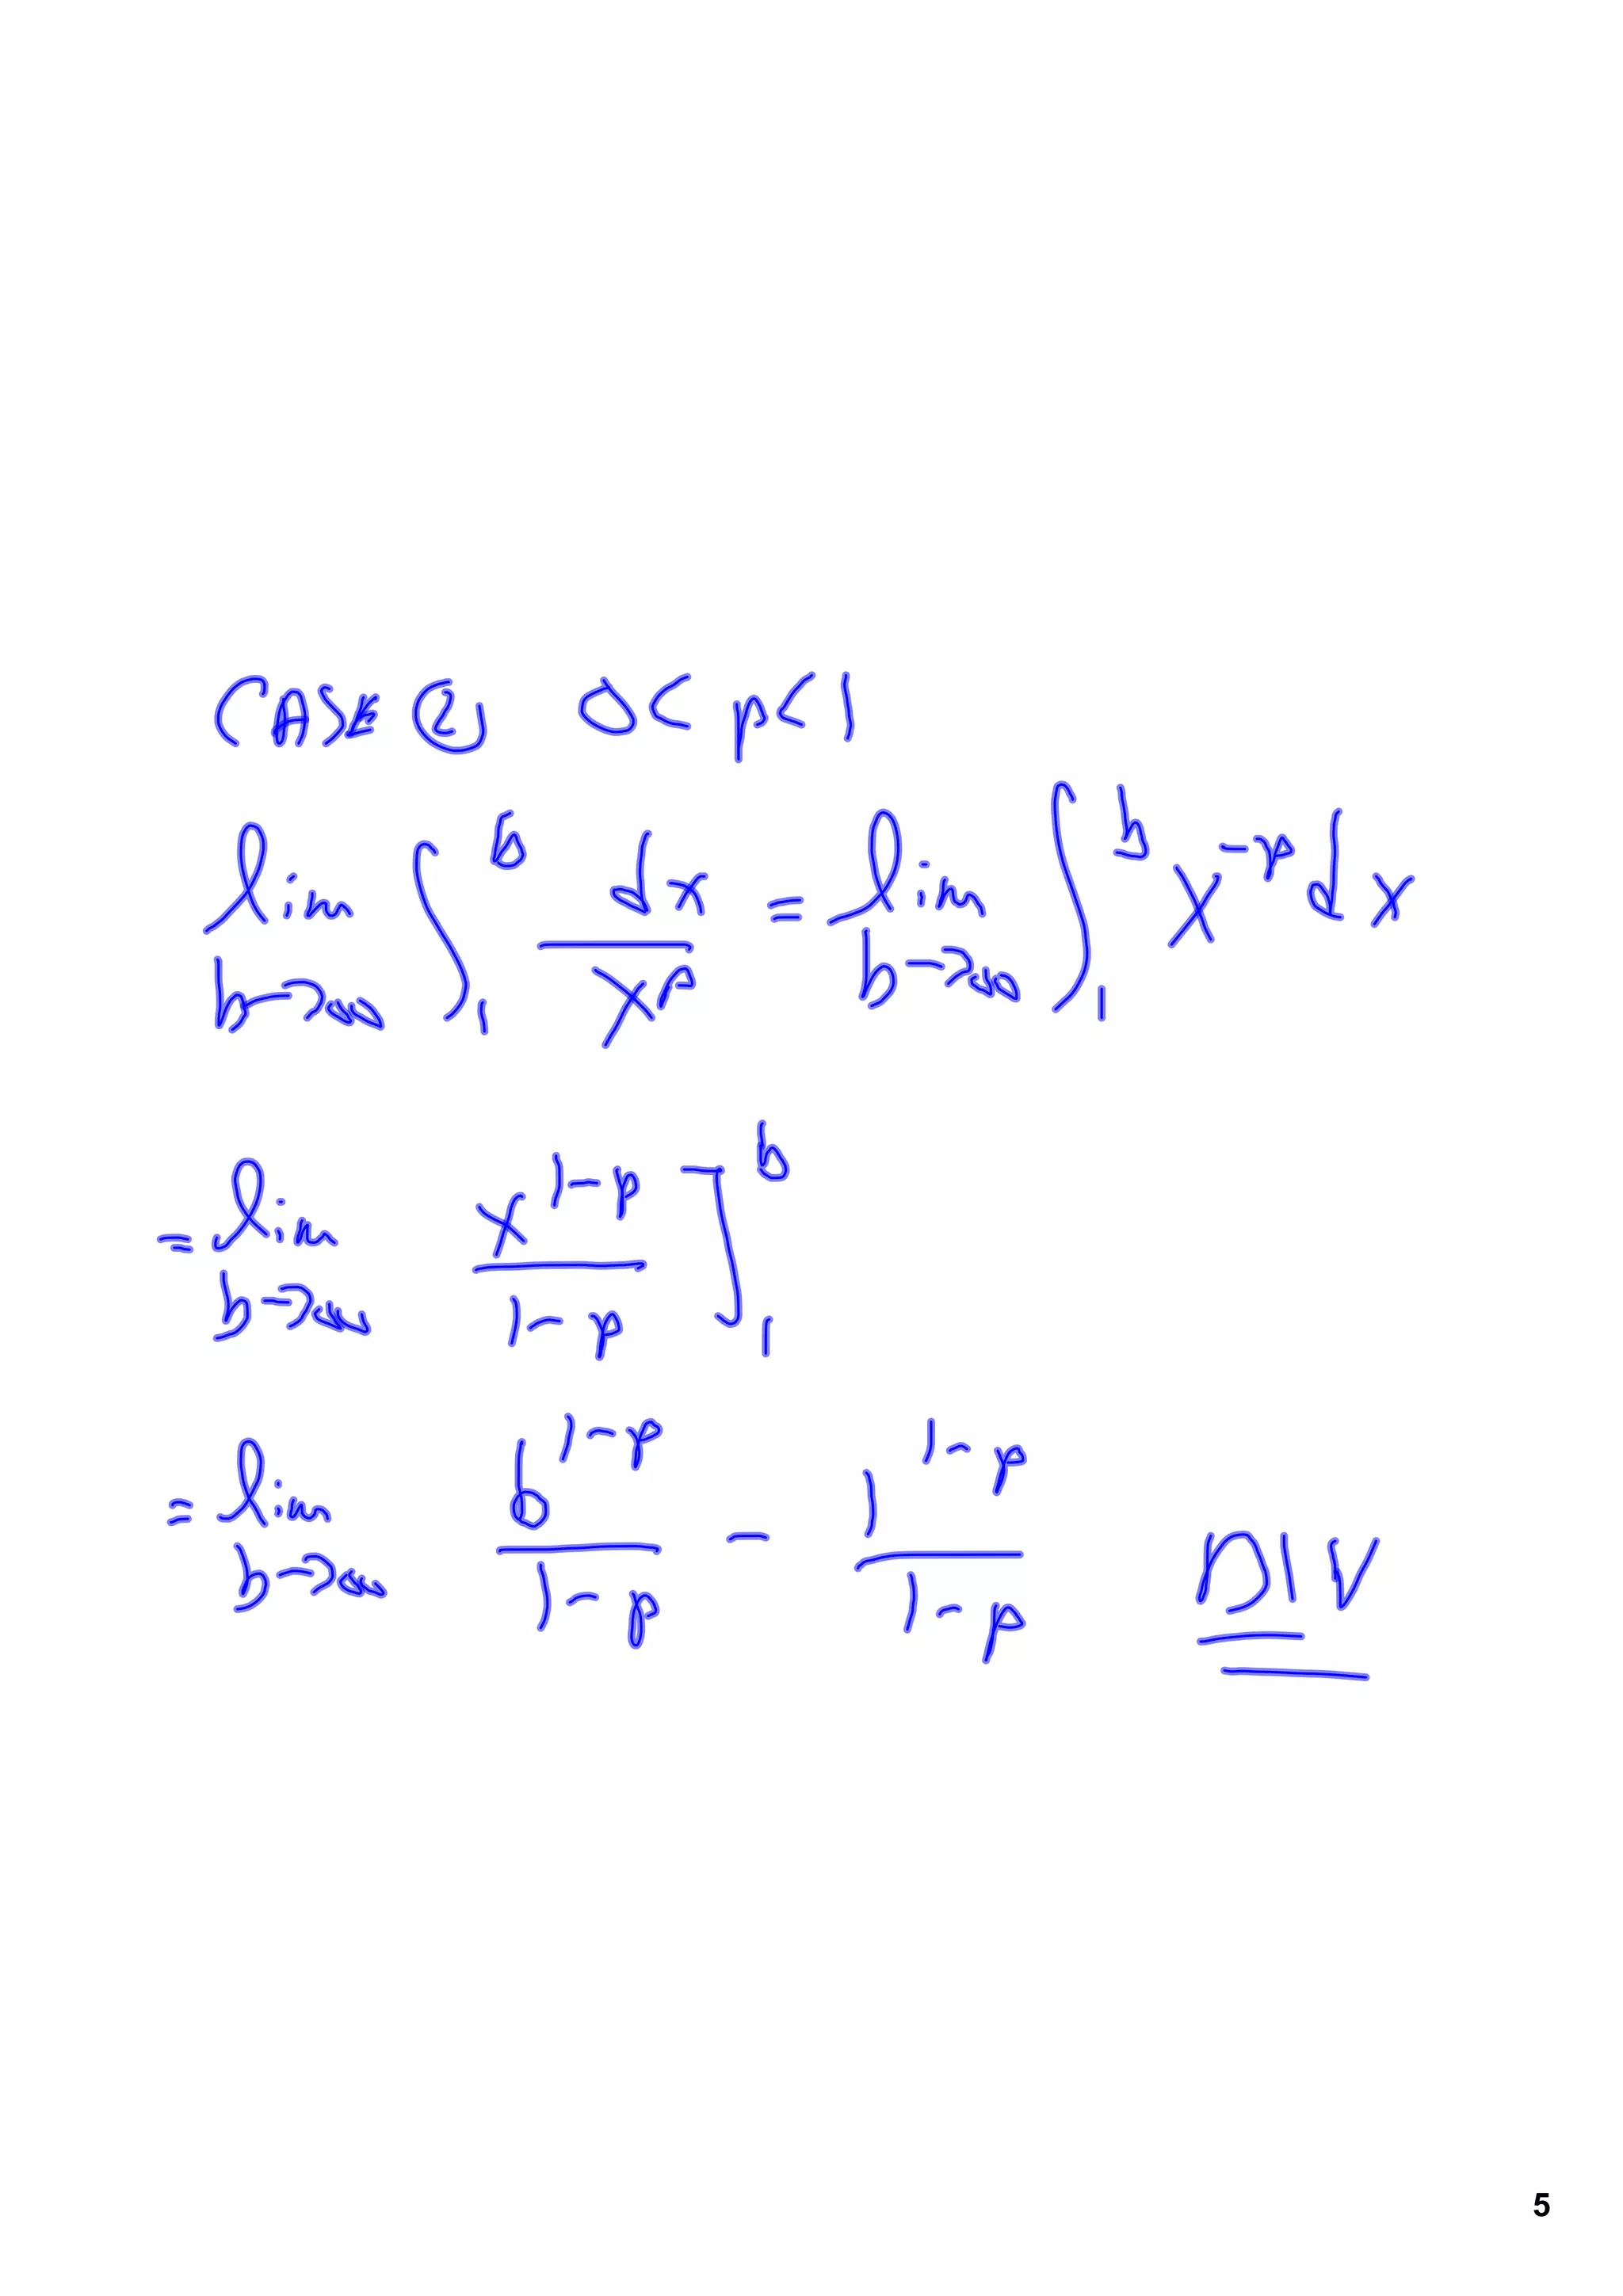 CASE ② 0 < p < 1
lim b→∞ ∫₁ᵇ dx/xᵖ = lim b→∞ ∫₁ᵇ x⁻ᵖ dx
= lim b→∞ x¹⁻ᵖ/(1-p) ]₁ᵇ
= lim b→∞ b¹⁻ᵖ/(1-p) - 1¹⁻ᵖ/(1-p) DIV
5